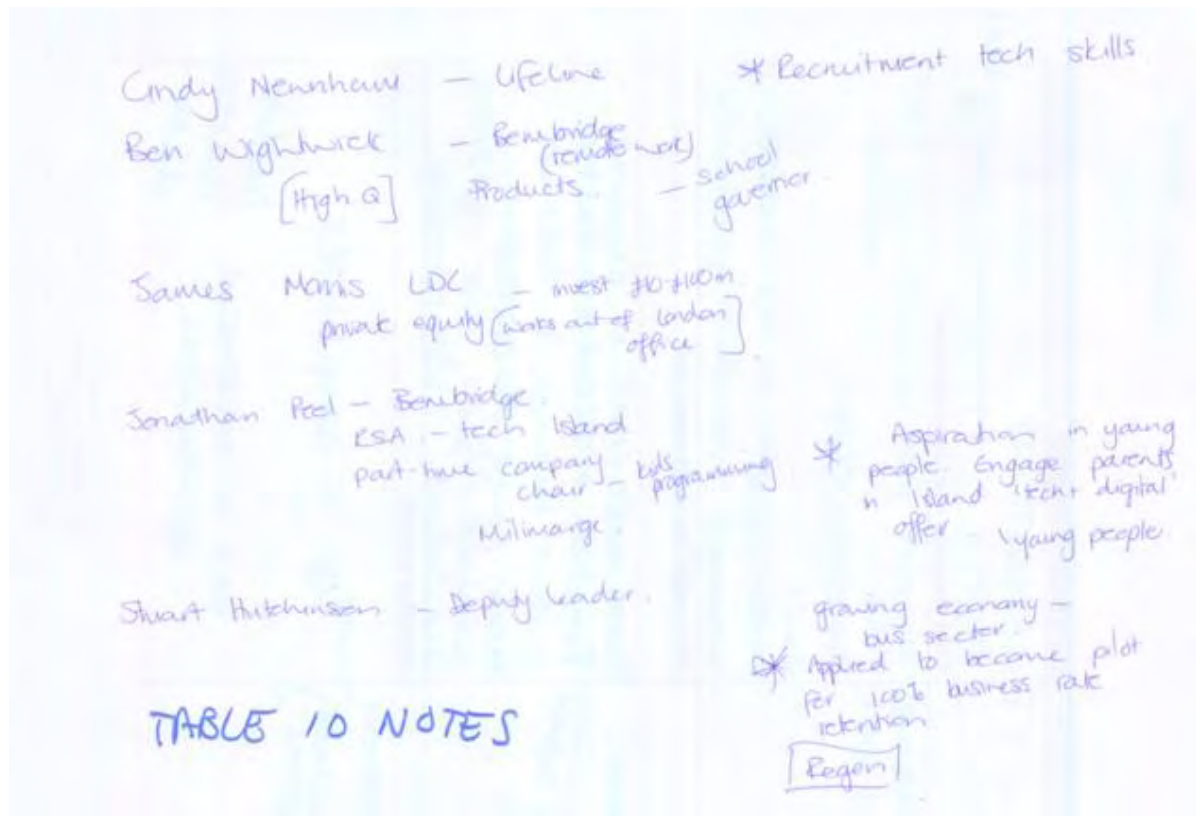 Cindy Newnham — Lifeline
* Recruitment tech skills
Ben Wightwick — Bembridge
(remote work)
[High Q] Products — school
governor.
James Morris LDC — invest £10-£100m
private equity [works out of London
office]
Jonathan Peel — Bembridge.
RSA — tech Island
part-time company
chair — kids
programming
Stuart Hutchinson — Deputy leader.
* Aspiration in young
people. Engage parents
in Island 'tech + digital'
offer — young people
growing economy —
bus sector.
* Applied to become pilot
for 100% business rate
retention
[Regen]
TABLE 10 NOTES